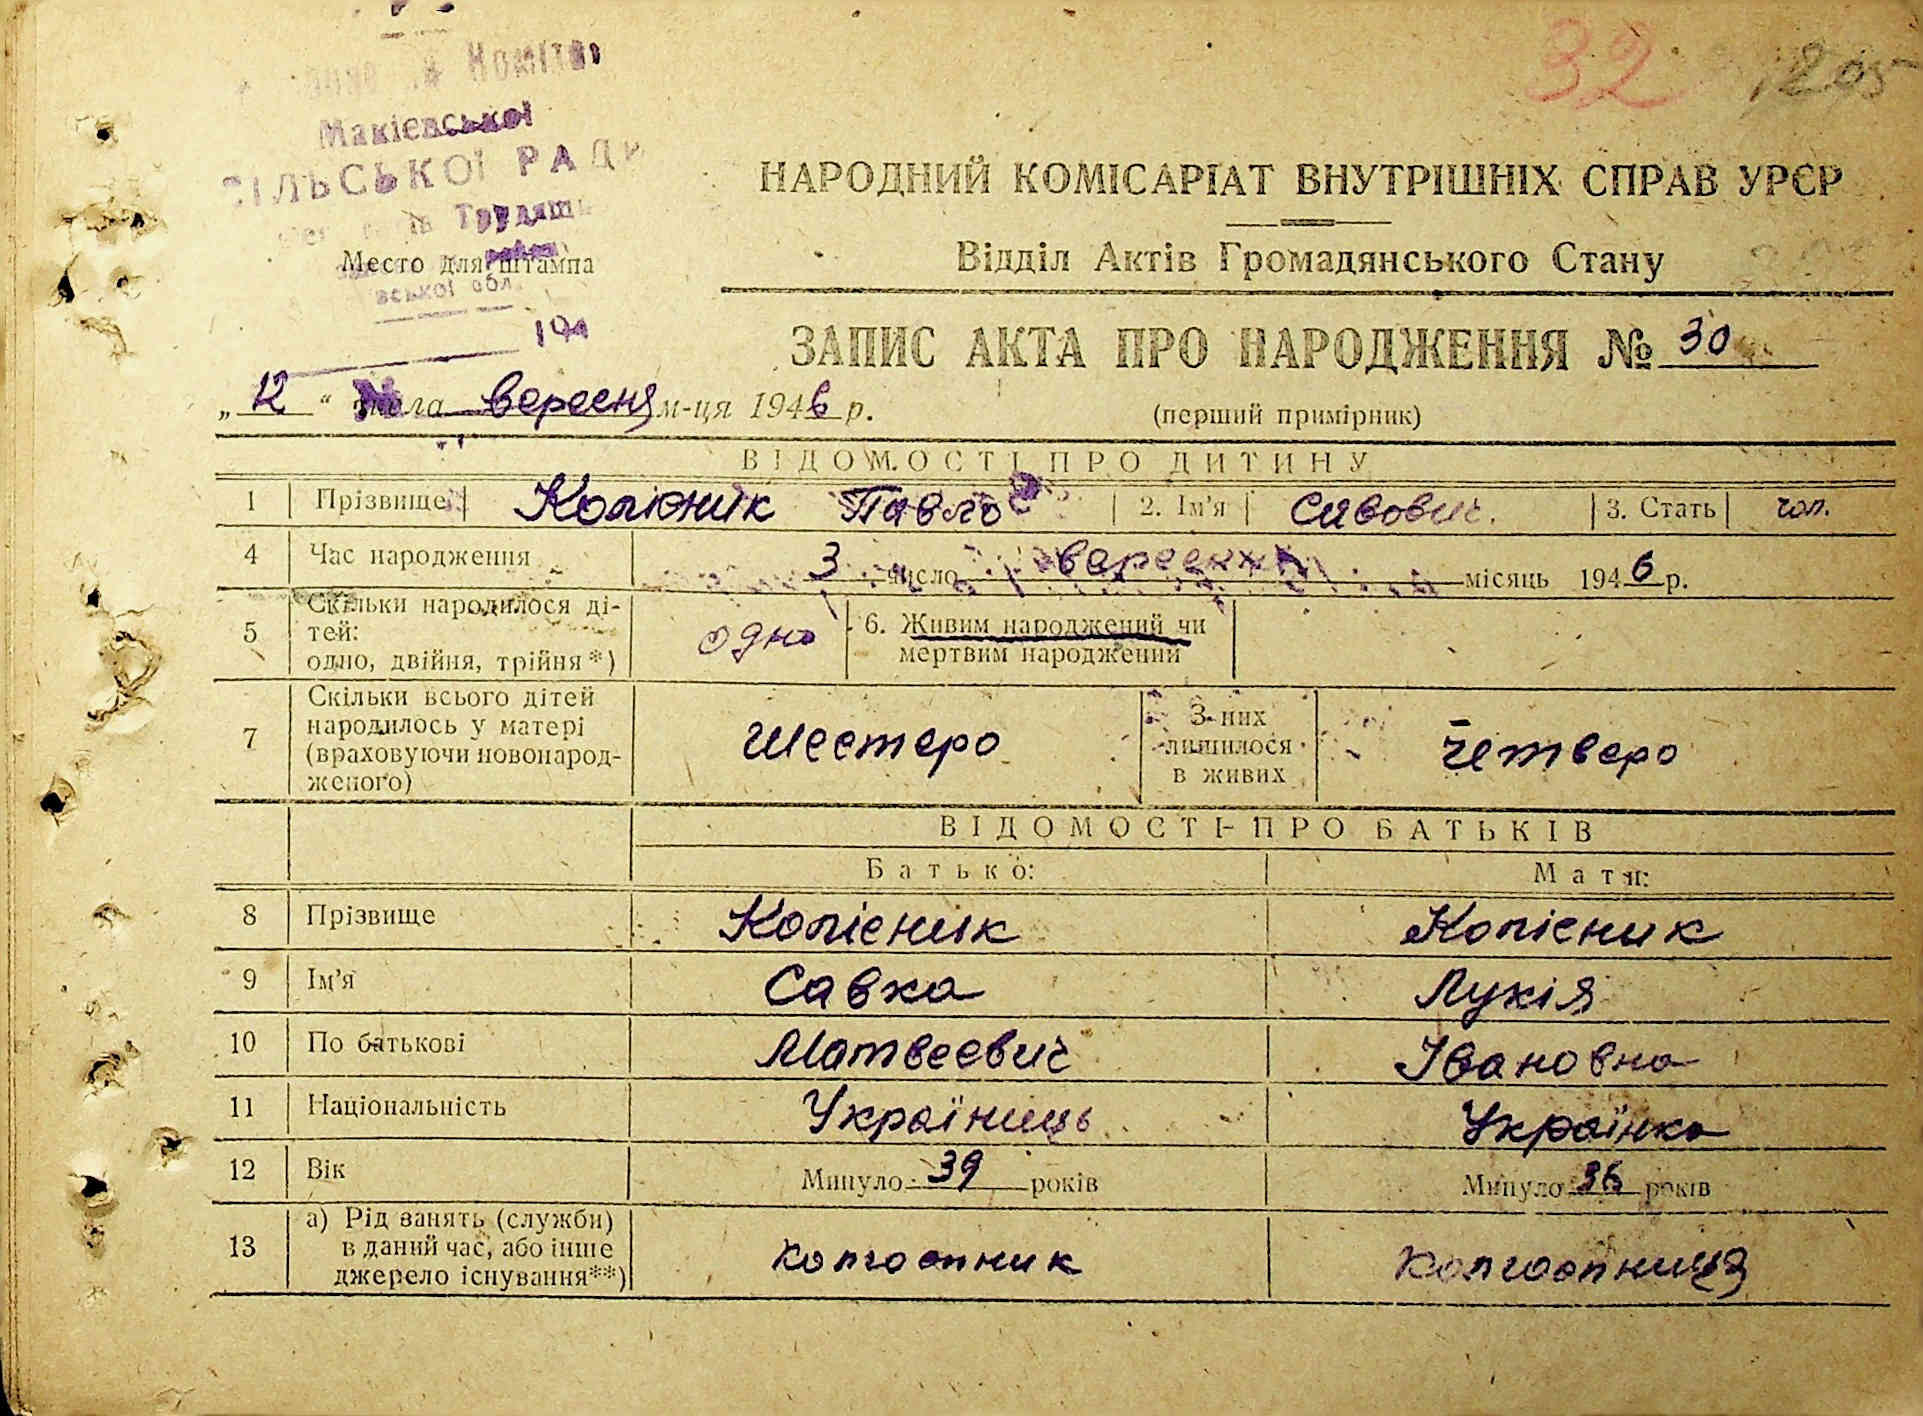 32 1205
Макієвської
СІЛЬСЬКОЇ РАДИ
Место для штампа
вської обл.
194
НАРОДНИЙ КОМІСАРІАТ ВНУТРІШНІХ СПРАВ УРСР
Відділ Актів Громадянського Стану
ЗАПИС АКТА ПРО НАРОДЖЕННЯ № 30
„ 12 “ числа вересня м-ця 1946 р.
(перший примірник)
ВІДОМОСТІ ПРО ДИТИНУ
1 Прізвище Копієник Павло 2. Ім'я Савович. 3. Стать чол.
4 Час народження 3 число вересня місяць 1946 р.
5 Скільки народилося ді-
тей:
одно, двійня, трійня*) одно 6. Живим народжений чи
мертвим народжений
7 Скільки всього дітей
народилось у матері
(враховуючи новонарод-
женого) Шестеро З них
лишилося
в живих Четверо
ВІДОМОСТІ ПРО БАТЬКІВ
Батько: Мати:
8 Прізвище Копієник Копієник
9 Ім'я Савка Лукія
10 По батькові Матвеевич Івановна
11 Національність Україниць Українка
12 Вік Минуло 39 років Минуло 36 років
13 а) Рід занять (служби)
в даний час, або інше
джерело існування**) колгоспник колгоспниця